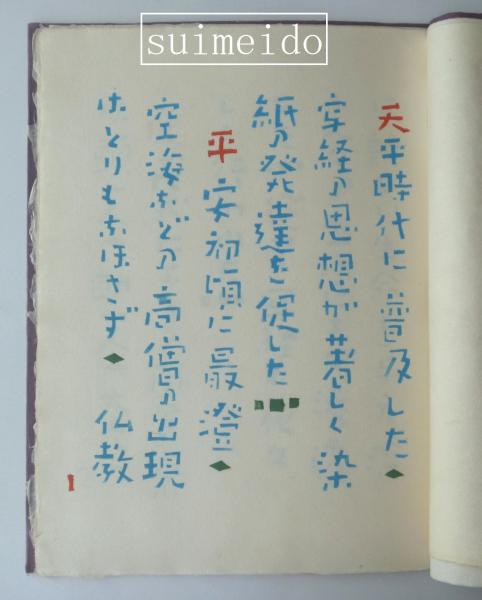 suimeido
天平時代に普及した◆
写経の思想が著しく染
紙の発達を促した
平安初頃に最澄◆
空海などの高僧の出現
はとりもなほさず◆ 仏教
1